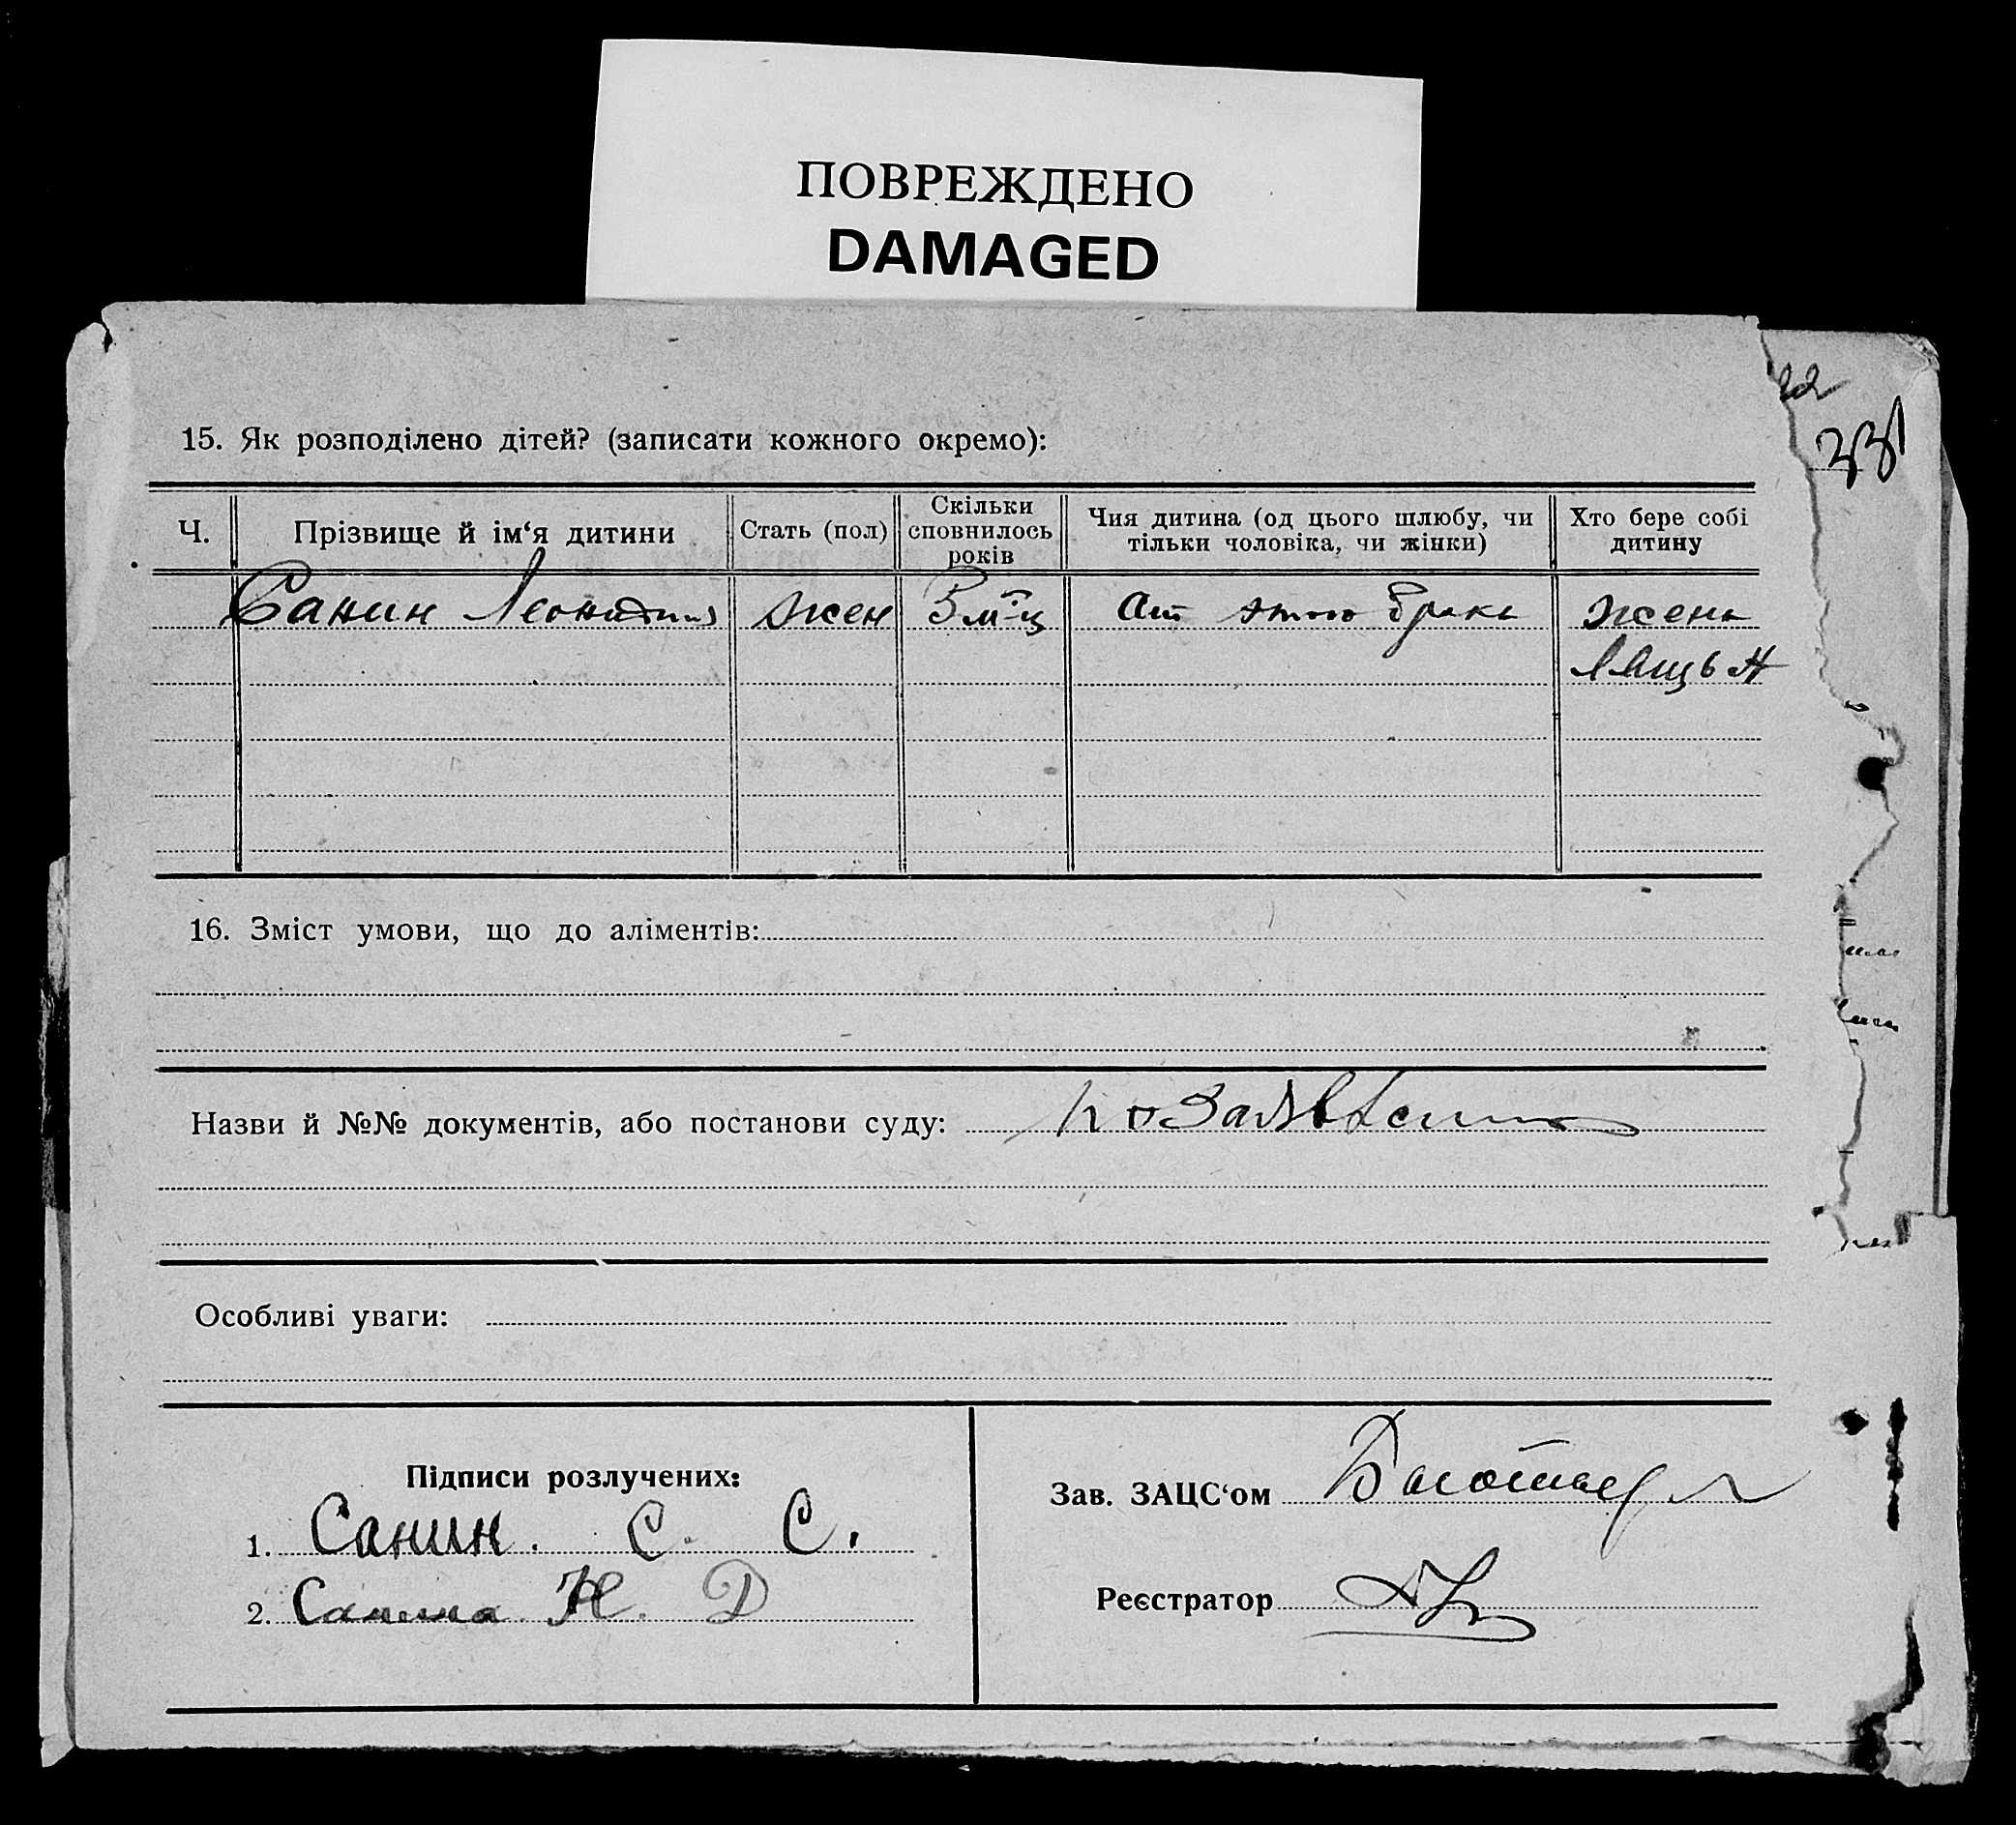 ПОВРЕЖДЕНО
DAMAGED
15. Як розподілено дітей? (записати кожного окремо):
Ч.
Прізвище й ім‘я дитини
Стать (пол)
Скільки сповнилось років
Чия дитина (од цього шлюбу, чи тільки чоловіка, чи жінки)
Хто бере собі дитину
Санин жен 5 м-ц От этого брака жена
16. Зміст умови, що до аліментів:
Назви й №№ документів, або постанови суду: по Заявлению
Особливі уваги:
Підписи розлучених:
1. Санин. С. С.
2. Санина Н. Д
Зав. ЗАЦС‘ом
Реєстратор